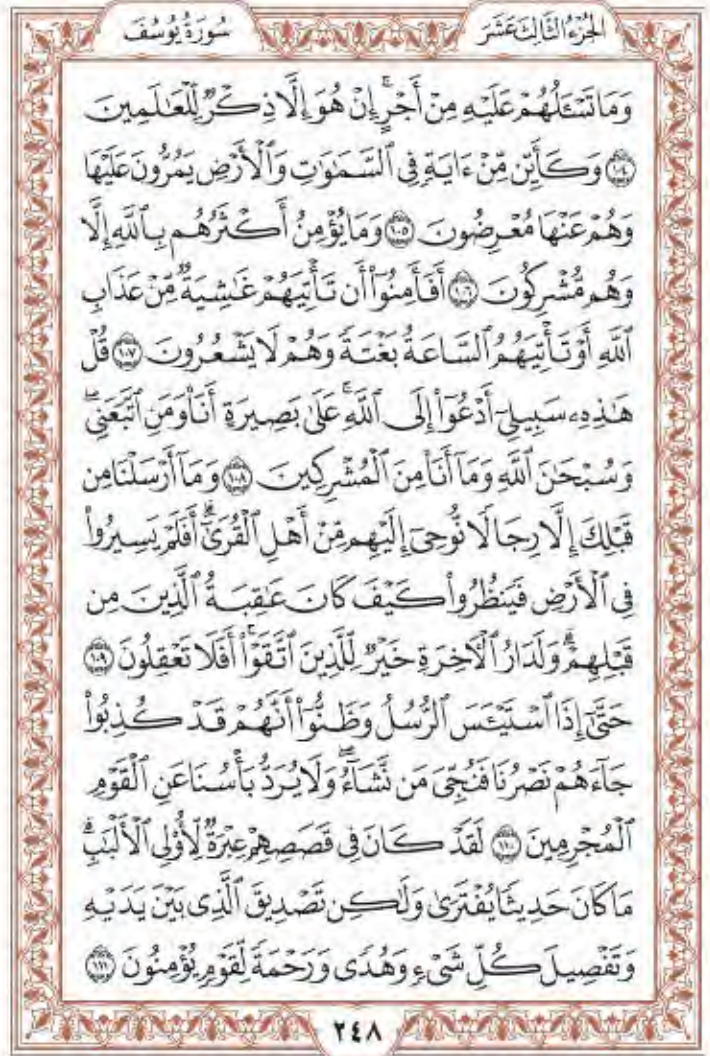 سُورَةُ يُوسُفَ
الجُزْءُ الثَّالِثَ عَشَرَ
وَمَا تَسْـَٔلُهُمْ عَلَيْهِ مِنْ أَجْرٍ ۚ إِنْ هُوَ إِلَّا ذِكْرٌ لِّلْعَـٰلَمِينَ
١٠٤ وَكَأَيِّن مِّنْ ءَايَةٍ فِى ٱلسَّمَـٰوَٰتِ وَٱلْأَرْضِ يَمُرُّونَ عَلَيْهَا
وَهُمْ عَنْهَا مُعْرِضُونَ ١٠٥ وَمَا يُؤْمِنُ أَكْثَرُهُم بِٱللَّهِ إِلَّا
وَهُم مُّشْرِكُونَ ١٠٦ أَفَأَمِنُوٓا۟ أَن تَأْتِيَهُمْ غَـٰشِيَةٌ مِّنْ عَذَابِ
ٱللَّهِ أَوْ تَأْتِيَهُمُ ٱلسَّاعَةُ بَغْتَةً وَهُمْ لَا يَشْعُرُونَ ١٠٧ قُلْ
هَـٰذِهِۦ سَبِيلِىٓ أَدْعُوٓا۟ إِلَى ٱللَّهِ ۚ عَلَىٰ بَصِيرَةٍ أَنَا۠ وَمَنِ ٱتَّبَعَنِى ۖ
وَسُبْحَـٰنَ ٱللَّهِ وَمَآ أَنَا۠ مِنَ ٱلْمُشْرِكِينَ ١٠٨ وَمَآ أَرْسَلْنَا مِن
قَبْلِكَ إِلَّا رِجَالًا نُّوحِىٓ إِلَيْهِم مِّنْ أَهْلِ ٱلْقُرَىٰٓ ۗ أَفَلَمْ يَسِيرُوا۟
فِى ٱلْأَرْضِ فَيَنظُرُوا۟ كَيْفَ كَانَ عَـٰقِبَةُ ٱلَّذِينَ مِن
قَبْلِهِمْ ۗ وَلَدَارُ ٱلْـَٔاخِرَةِ خَيْرٌ لِّلَّذِينَ ٱتَّقَوْا۟ ۗ أَفَلَا تَعْقِلُونَ ١٠٩
حَتَّىٰٓ إِذَا ٱسْتَيْـَٔسَ ٱلرُّسُلُ وَظَنُّوٓا۟ أَنَّهُمْ قَدْ كُذِبُوا۟
جَآءَهُمْ نَصْرُنَا فَنُجِّىَ مَن نَّشَآءُ ۖ وَلَا يُرَدُّ بَأْسُنَا عَنِ ٱلْقَوْمِ
ٱلْمُجْرِمِينَ ١١٠ لَقَدْ كَانَ فِى قَصَصِهِمْ عِبْرَةٌ لِّأُو۟لِى ٱلْأَلْبَـٰبِ ۗ
مَا كَانَ حَدِيثًا يُفْتَرَىٰ وَلَـٰكِن تَصْدِيقَ ٱلَّذِى بَيْنَ يَدَيْهِ
وَتَفْصِيلَ كُلِّ شَىْءٍ وَهُدًى وَرَحْمَةً لِّقَوْمٍ يُؤْمِنُونَ ١١١
٢٤٨